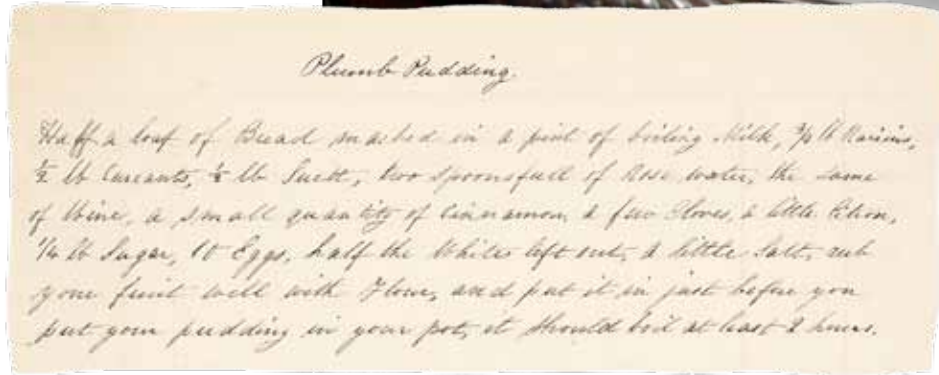 Plumb Pudding.
Haff a loaf of Bread mashed in a pint of boiling Milk, 3/4 lb Raisins,
½ lb Currants, ½ lb Suett, two spoonsfull of Rose water, the same
of Wine, a small quantity of Cinnamon, a few Cloves, a little Citron,
1/4 lb Sugar, 10 Eggs, half the Whites left out, a little Salt, rub
your fruit well with Flour, and put it in just before you
put your pudding in your pot, it should boil at least 2 hours.